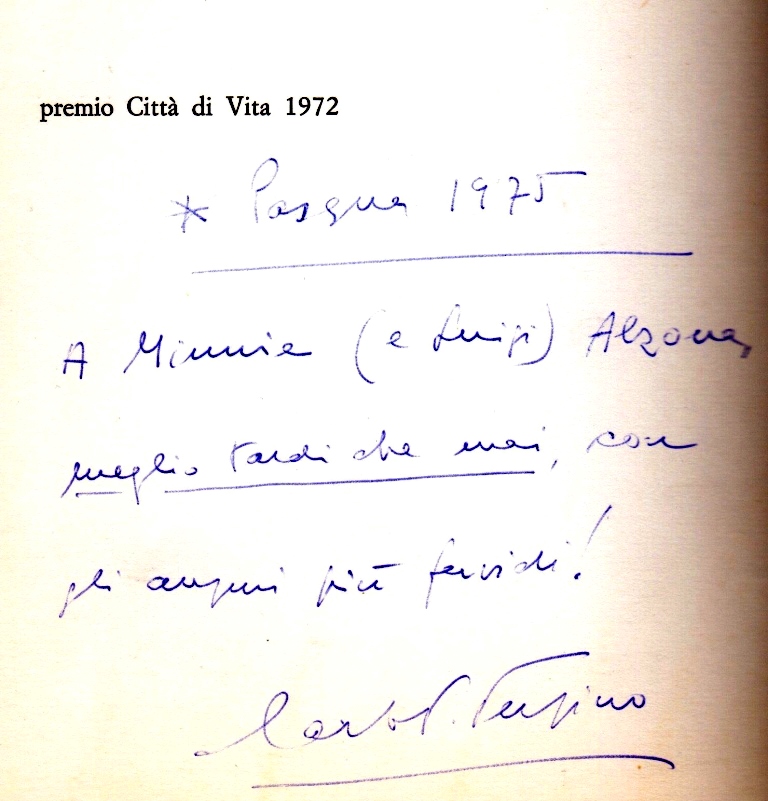 premio Città di Vita 1972
* Pasqua 1975
A Minnie (e Luigi) Alzona,
meglio tardi che mai, con
gli auguri più fervidi!
Carlo